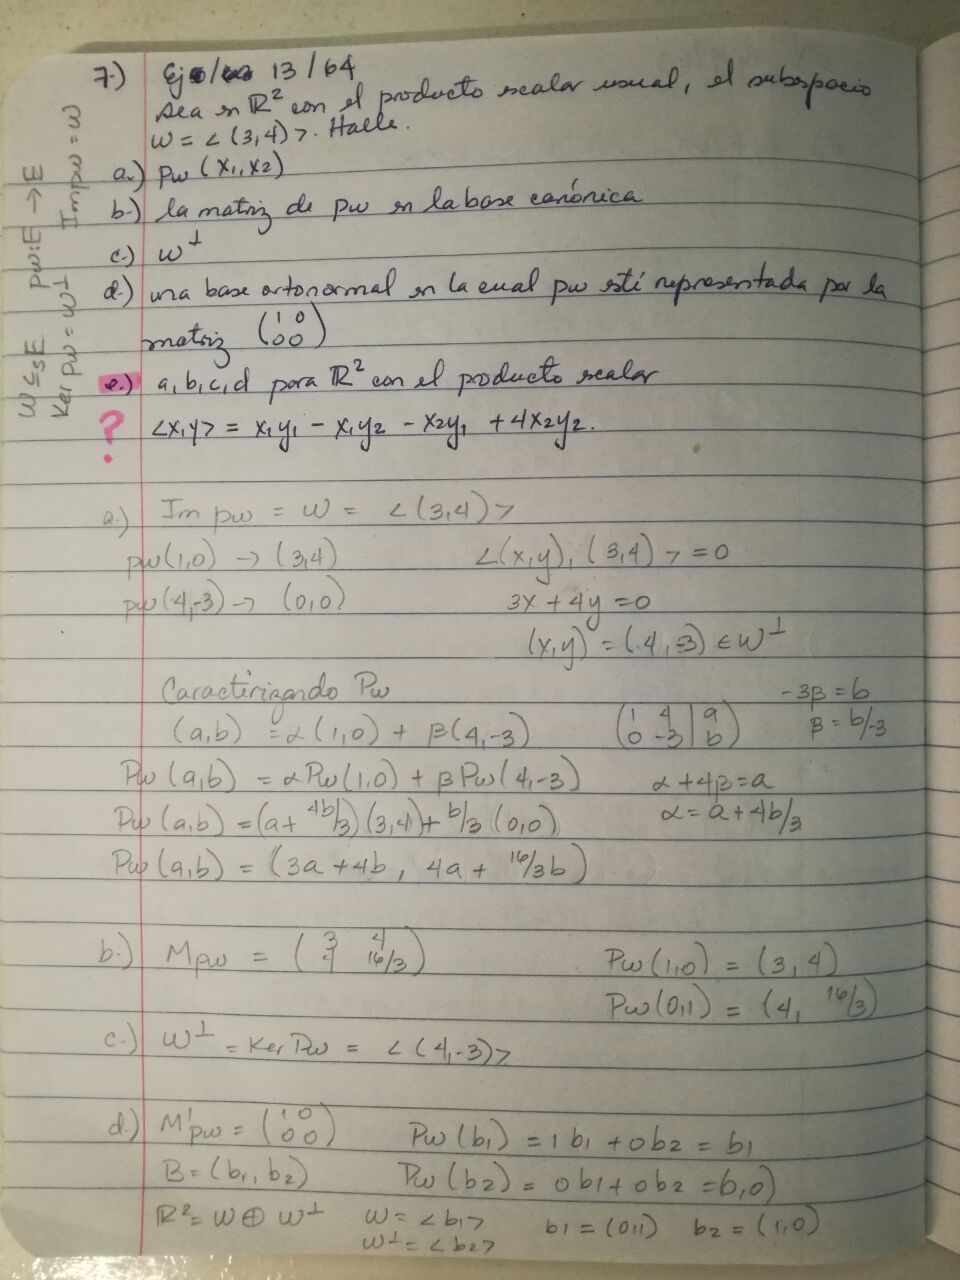 7.) Ejo/ 13/64
Sea en ℝ² con el producto escalar usual, el subespacio
W = <(3,4)>. Halle.
a.) pw (x₁,x₂)
b.) la matriz de pw en la base canónica
c.) W⊥
d.) una base ortonormal en la cual pw esté representada por la
matriz (1 0
0 0)
e.) a,b,c,d para ℝ² con el producto escalar
? <x,y> = x₁y₁ - x₁y₂ - x₂y₁ + 4x₂y₂.
W ≤s E pw:E → E
Ker pw = W⊥ Im pw = W
a.) Im pw = W = <(3,4)>
pw(1,0) → (3,4) <(x,y),(3,4)> = 0
pw(4,-3) → (0,0) 3x + 4y = 0
(x,y) = (4,-3) ∈ W⊥
Caractirizando Pw -3β = b
(a,b) = α(1,0) + β(4,-3) (1 4 | a
0 -3 | b) β = b/-3
Pw(a,b) = αPw(1,0) + βPw(4,-3) α + 4β = a
Pw(a,b) = (a + 4b/3)(3,4) + b/3 (0,0) α = a + 4b/3
Pw(a,b) = (3a + 4b, 4a + 16/3b)
b.) Mpw = (3 4
4 16/3) Pw(1,0) = (3,4)
Pw(0,1) = (4, 16/3)
c.) W⊥ = Ker Pw = <(4,-3)>
d.) M'pw = (1 0
0 0) Pw(b₁) = 1b₁ + 0b₂ = b₁
B = (b₁, b₂) Pw(b₂) = 0b₁ + 0b₂ = (0,0)
ℝ² = W ⊕ W⊥ W = <b₁> b₁ = (0,1) b₂ = (1,0)
W⊥ = <b₂>